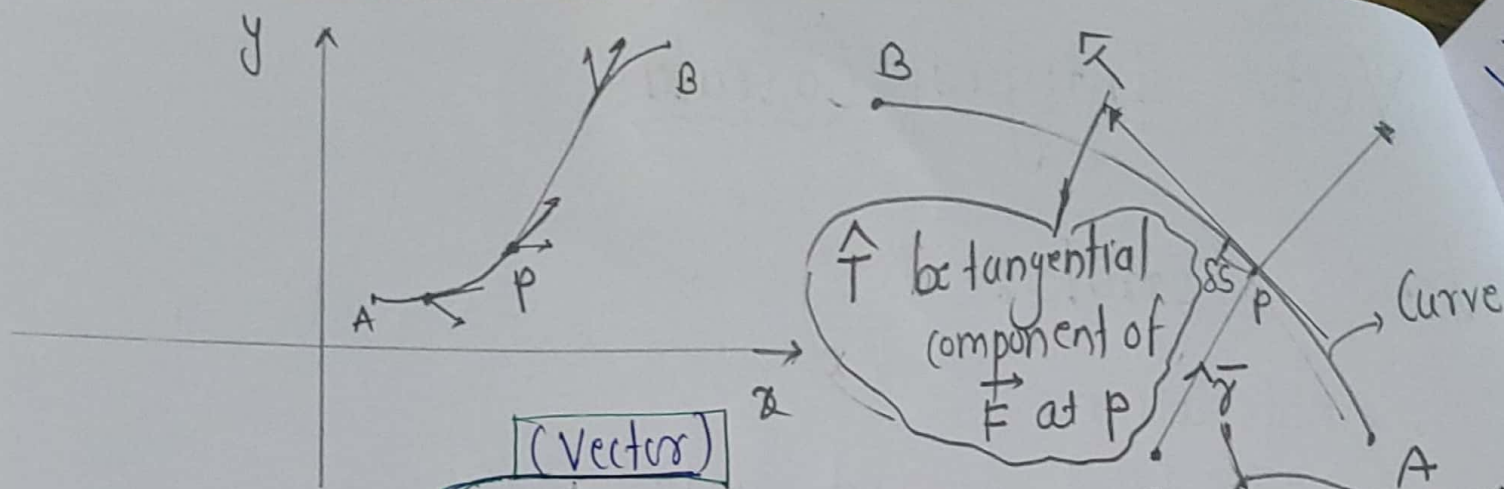 y
B
P
A
x
(Vector)
B
T̂ be tangential
component of
F⃗ at P
δS
P
Curve
r̄
A